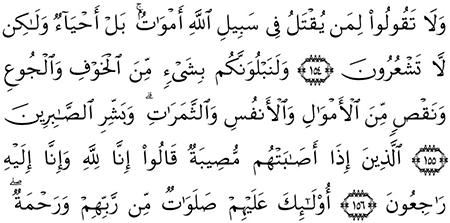 وَلَا تَقُولُوا۟ لِمَن يُقْتَلُ فِى سَبِيلِ ٱللَّهِ أَمْوَٰتٌۢ ۚ بَلْ أَحْيَآءٌ وَلَٰكِن
لَّا تَشْعُرُونَ ﴿١٥٤﴾ وَلَنَبْلُوَنَّكُم بِشَىْءٍ مِّنَ ٱلْخَوْفِ وَٱلْجُوعِ
وَنَقْصٍ مِّنَ ٱلْأَمْوَالِ وَٱلْأَنفُسِ وَٱلثَّمَرَاتِ ۗ وَبَشِّرِ ٱلصَّابِرِينَ
﴿١٥٥﴾ ٱلَّذِينَ إِذَا أَصَابَتْهُم مُّصِيبَةٌ قَالُوا۟ إِنَّا لِلَّهِ وَإِنَّا إِلَيْهِ
رَاجِعُونَ ﴿١٥٦﴾ أُو۟لَٰئِكَ عَلَيْهِمْ صَلَوَاتٌ مِّن رَّبِّهِمْ وَرَحْمَةٌ ۖ